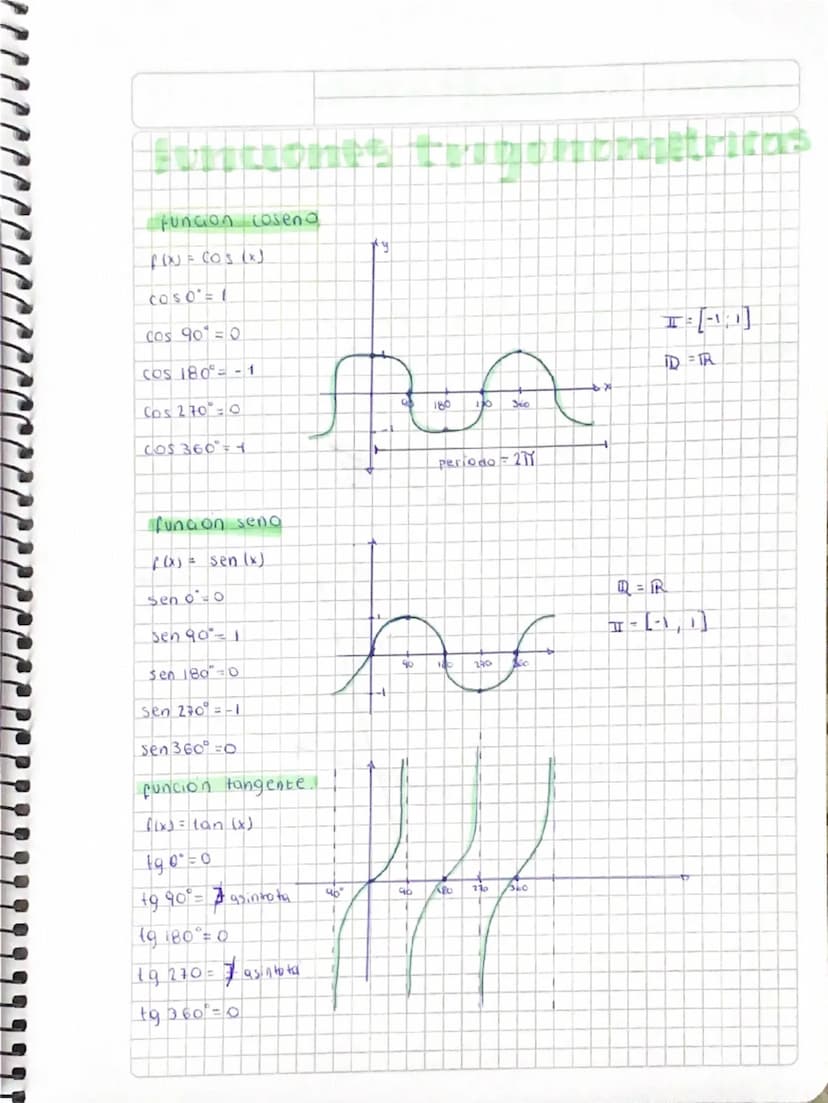 funciones trigonometricas
función coseno
f(x) = cos (x)
cos 0° = 1
cos 90° = 0
cos 180° = -1
cos 270° = 0
cos 360° = 1
y
1
x
90 180 270 360
-1
periodo = 2π
II = [-1; 1]
ID = IR
función seno
f(x) = sen (x)
sen 0° = 0
sen 90° = 1
sen 180° = 0
sen 270° = -1
sen 360° = 0
1
90 180 270 360
-1
ID = IR
II = [-1, 1]
función tangente.
f(x) = tan (x)
tg 0° = 0
tg 90° = ∄ asintota
tg 180° = 0
tg 270 = ∄ asintota
tg 360° = 0
90° 90 180 270 360